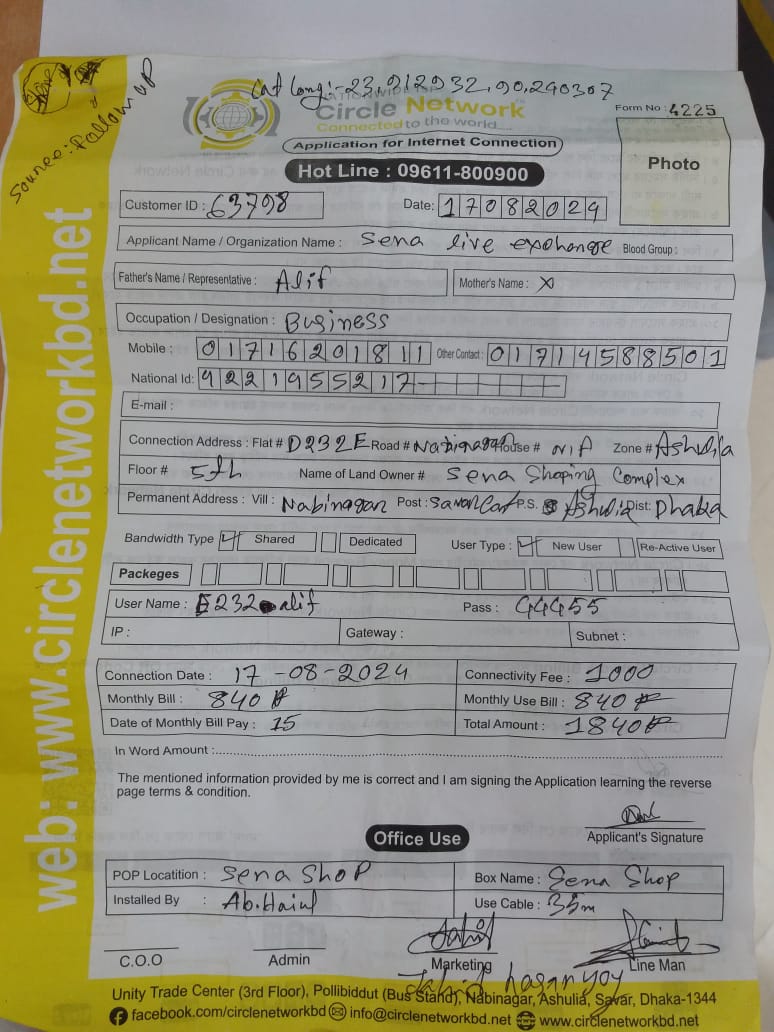 Lat Long:- 23.912932, 90.290307
Source: Follow up
NATIONWIDE ISP
Circle Network
Connected to the world....
Form No : 4225
Application for Internet Connection
Hot Line : 09611-800900
Photo
Customer ID : 63798
Date: 17082024
Applicant Name / Organization Name : Sena live exchange Blood Group :
Father's Name / Representative : Alif Mother's Name : X
Occupation / Designation : Business
Mobile : 01716201811 Other Contact : 01714588501
National Id: 9221955217-
E-mail :
Connection Address : Flat # D232E Road # Nabinagar House # N/A Zone # Ashulia
Floor # 5th Name of Land Owner # Sena Shoping Complex
Permanent Address : Vill : Nabinagar Post : Savar Cant P.S. Ashulia Dist: Dhaka
Bandwidth Type Shared Dedicated User Type : New User Re-Active User
Packeges
User Name : E232 alif Pass : 44455
IP : Gateway : Subnet :
Connection Date : 17-08-2024 Connectivity Fee : 1000
Monthly Bill : 840 Monthly Use Bill : 840
Date of Monthly Bill Pay : 15 Total Amount : 1840
In Word Amount :
The mentioned information provided by me is correct and I am signing the Application learning the reverse
page terms & condition.
Applicant's Signature
Office Use
POP Locatition : Sena Shop Box Name : Sena Shop
Installed By : Ab. Use Cable : 35m
C.O.O Admin Marketing Line Man
Jahid hasan
Unity Trade Center (3rd Floor), Pollibiddut (Bus Stand), Nabinagar, Ashulia, Savar, Dhaka-1344
facebook.com/circlenetworkbd info@circlenetworkbd.net www.circlenetworkbd.net
web: www.circlenetworkbd.net